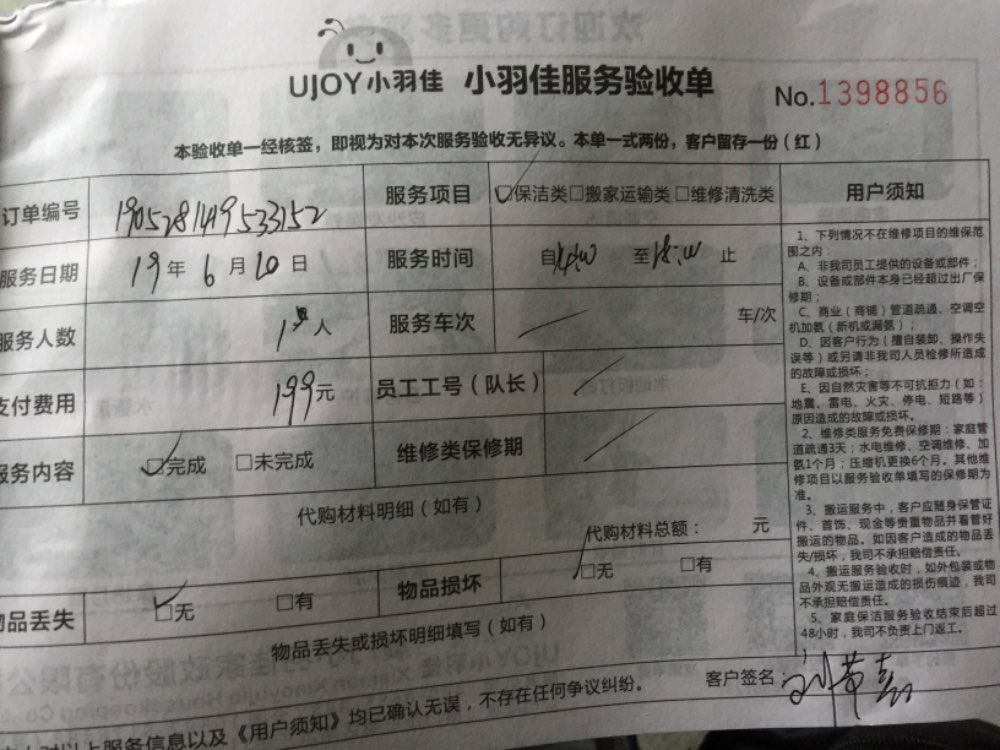 UJOY小羽佳 小羽佳服务验收单 No.1398856
本验收单一经核签，即视为对本次服务验收无异议。本单一式两份，客户留存一份（红）
订单编号 190528149533152 服务项目 □保洁类□搬家运输类□维修清洗类
服务日期 19年6月10日 服务时间 自14:00 至18:00 止
服务人数 1人 服务车次 车/次
支付费用 199元 员工工号（队长）
服务内容 □完成 □未完成 维修类保修期
代购材料明细（如有）
代购材料总额： 元
物品丢失 □无 □有 物品损坏 □无 □有
物品丢失或损坏明细填写（如有）
用户须知
1、下列情况不在维修项目的维保范
围之内：
A、非我司员工提供的设备或部件；
B、设备或部件本身已经超过出厂保
修期；
C、商业（商铺）管道疏通、空调空
机加氨（新机或漏氨）；
D、因客户行为（擅自装卸、操作失
误等）或另请非我司人员检修所造成
的故障或损坏；
E、因自然灾害等不可抗拒力（如：
地震、雷电、火灾、停电、短路等）
原因造成的故障或损坏。
2、维修类服务免费保修期：家庭管
道疏通3天；水电维修、空调维修、加
氨1个月；压缩机更换6个月。其他维
修项目以服务验收单填写的保修期为
准。
3、搬运服务中，客户应随身保管证
件、首饰、现金等贵重物品并看管好
搬运的物品。如因客户造成的物品丢
失/损坏，我司不承担赔偿责任。
4、搬运服务验收时，如外包装或物
品外观无搬运造成的损伤痕迹，我司
不承担赔偿责任。
5、家庭保洁服务验收结束后超过
48小时，我司不负责上门返工。
对以上服务信息以及《用户须知》均已确认无误，不存在任何争议纠纷。 客户签名：